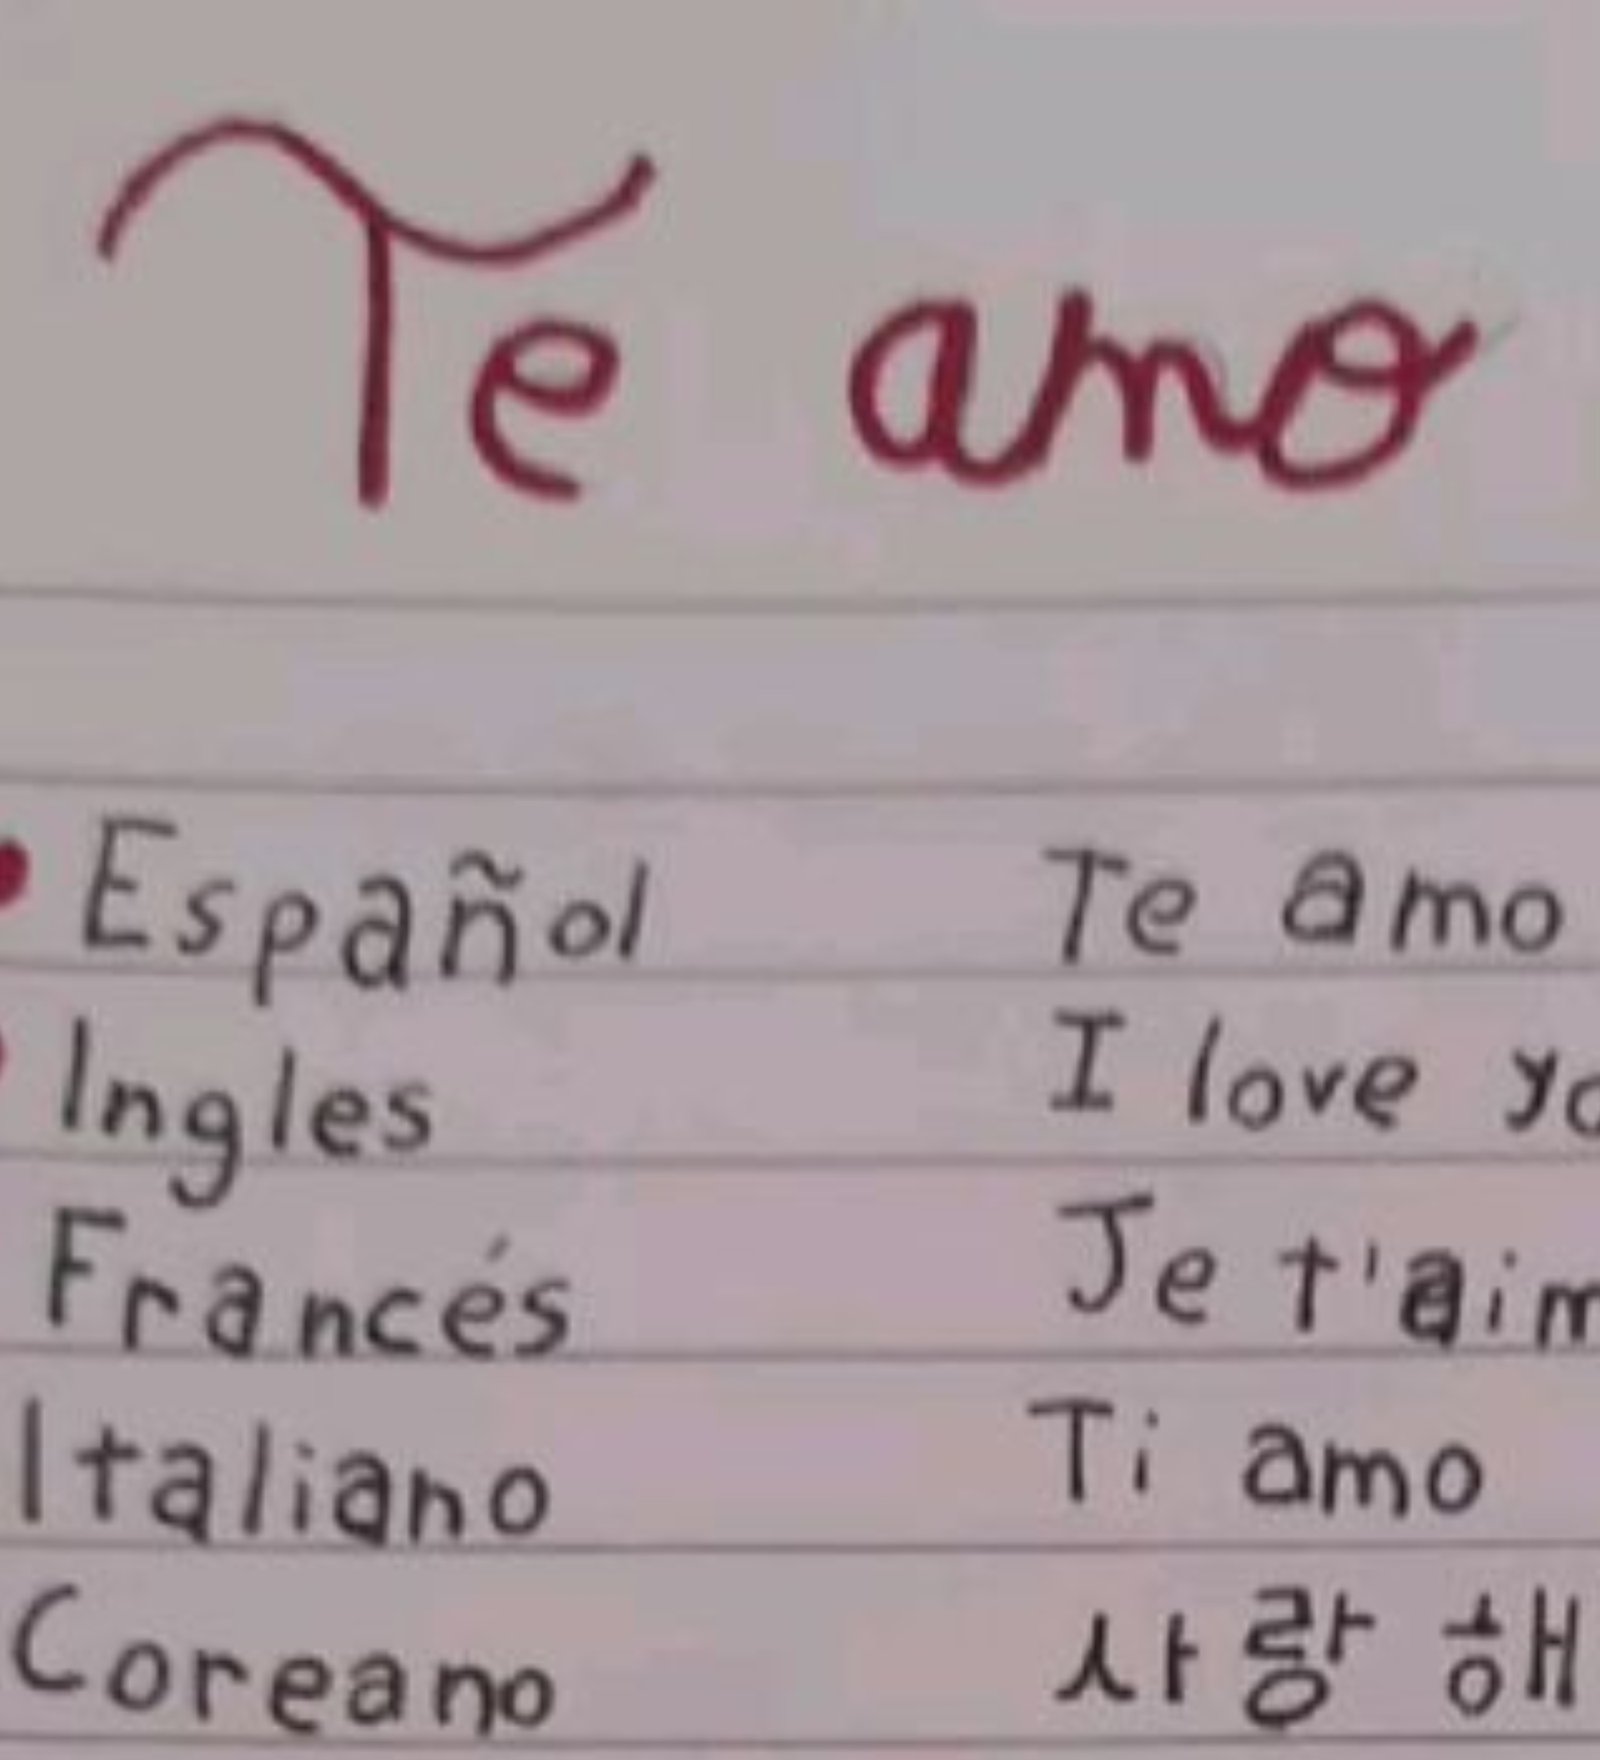 Te amo
Español Te amo
Ingles I love yo
Francés Je t'aim
Italiano Ti amo
Coreano 사랑해